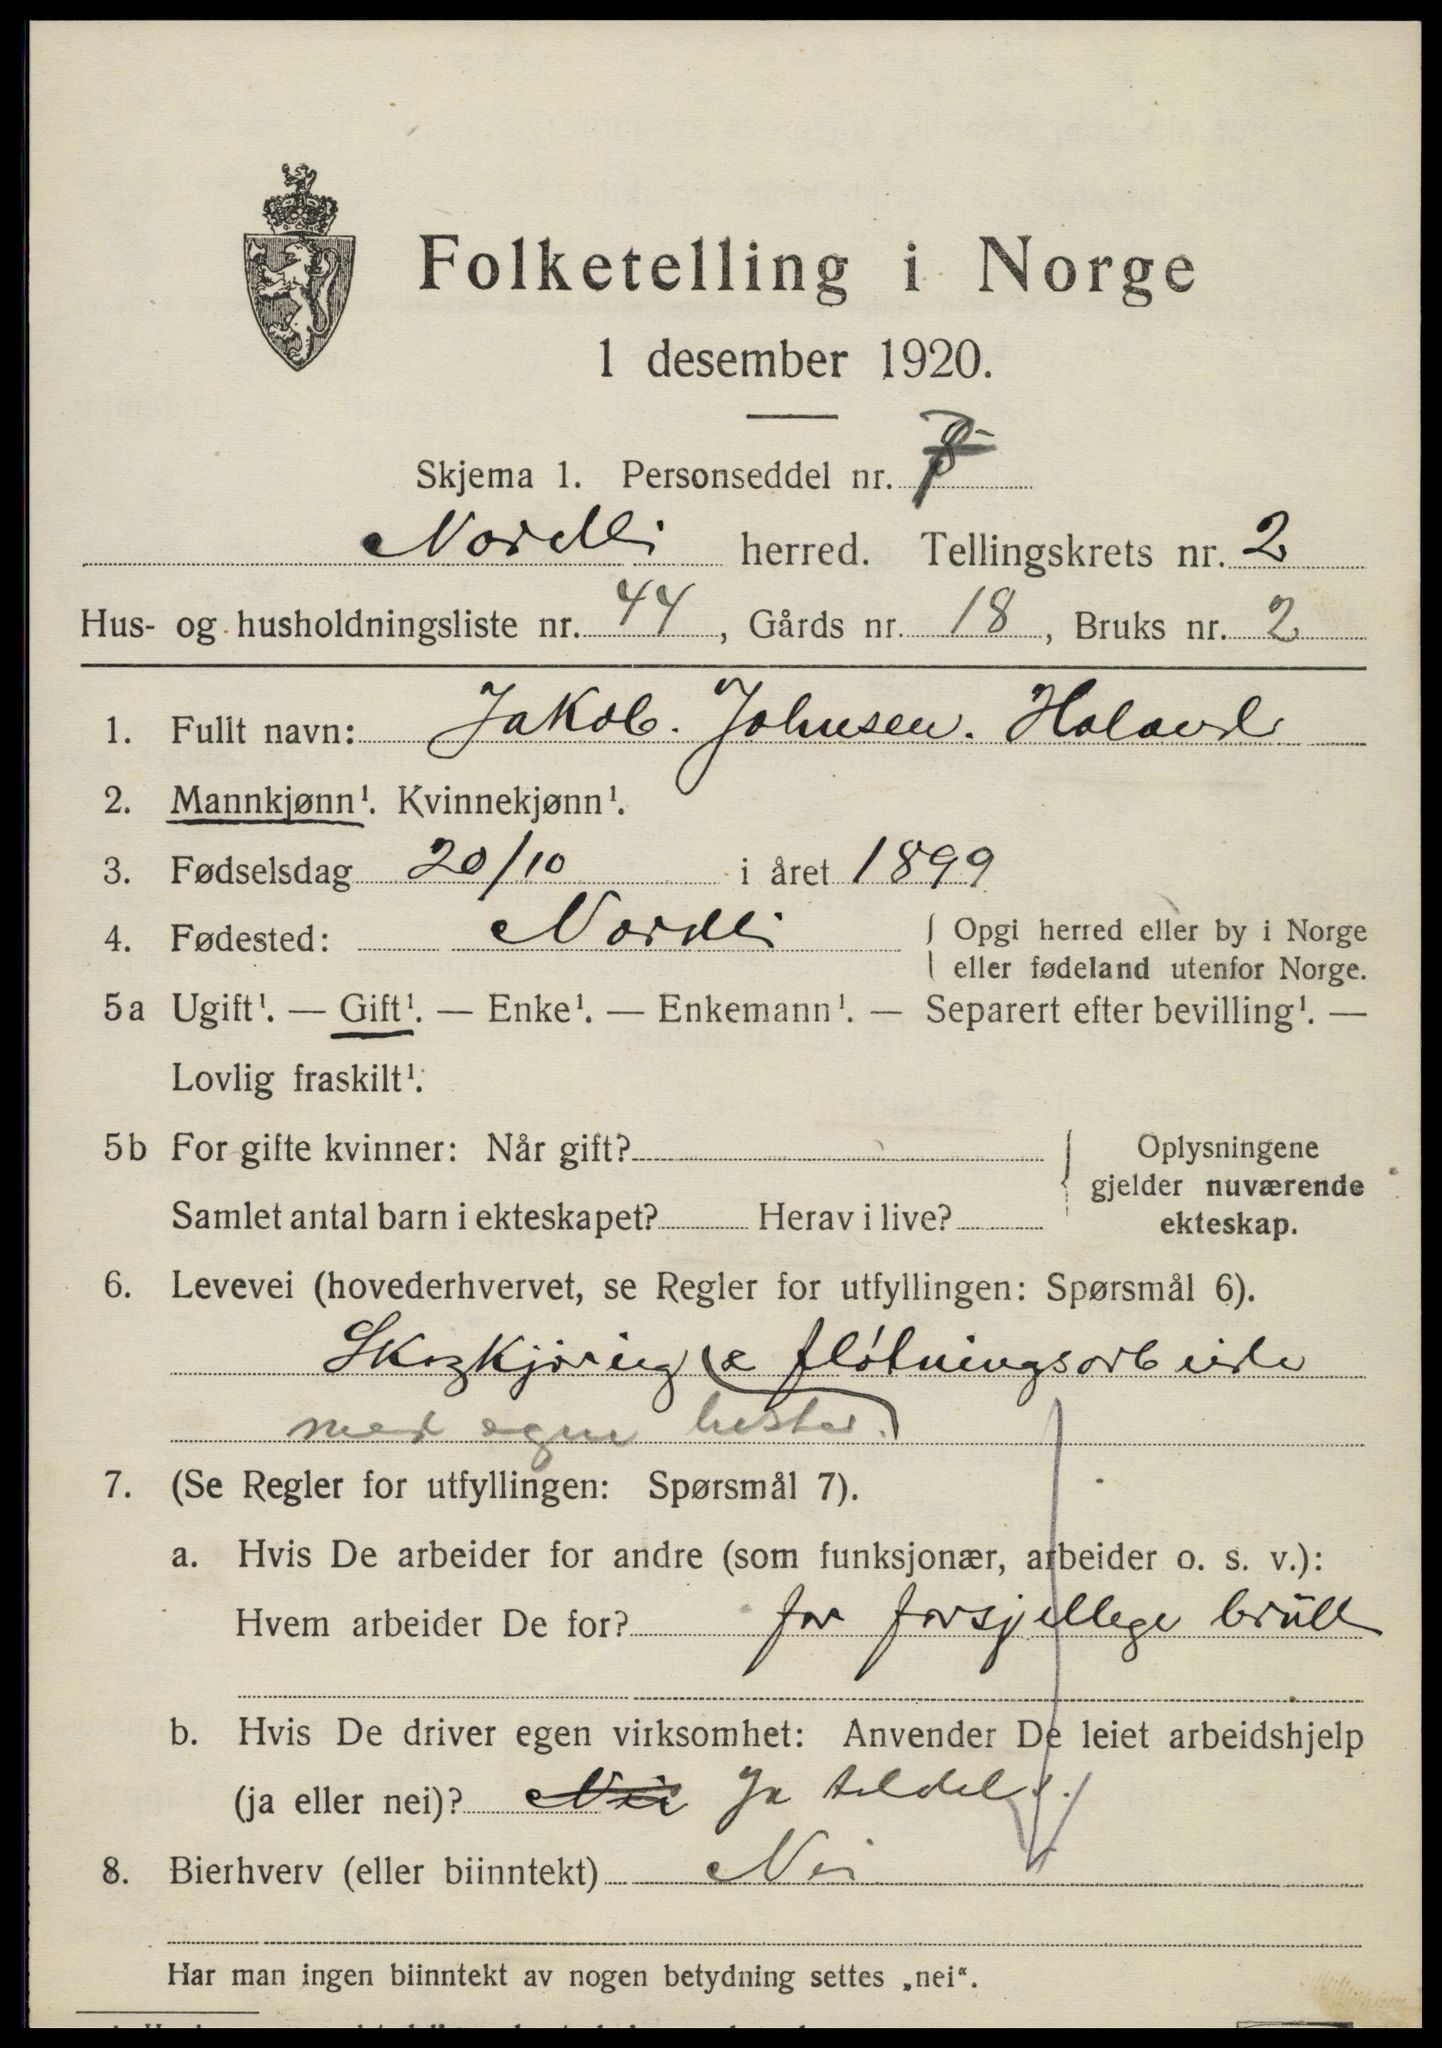 Folketelling i Norge
1 desember 1920.
Skjema 1. Personseddel nr. 7
Nordli herred. Tellingskrets nr. 2
Hus- og husholdningsliste nr. 44, Gårds nr. 18, Bruks nr. 2
1. Fullt navn: Jakob. Johnsen. Holand
2. Mannkjønn¹. Kvinnekjønn¹.
3. Fødselsdag 20/10 i året 1899
4. Fødested: Nordli { Opgi herred eller by i Norge
eller fødeland utenfor Norge.
5a Ugift¹. — Gift¹. — Enke¹. — Enkemann¹. — Separert efter bevilling¹. —
Lovlig fraskilt¹.
5b For gifte kvinner: Når gift? { Oplysningene
gjelder nuværende
Samlet antal barn i ekteskapet? Herav i live? ekteskap.
6. Levevei (hovederhvervet, se Regler for utfyllingen: Spørsmål 6).
Skogkjøring & fløtningsarbeide
med egne hester.
7. (Se Regler for utfyllingen: Spørsmål 7).
a. Hvis De arbeider for andre (som funksjonær, arbeider o. s. v.):
Hvem arbeider De for? for forsjellege bruk
b. Hvis De driver egen virksomhet: Anvender De leiet arbeidshjelp
(ja eller nei)? Nei Ja tildels.
8. Bierhverv (eller biinntekt) Nei
Har man ingen biinntekt av nogen betydning settes „nei“.